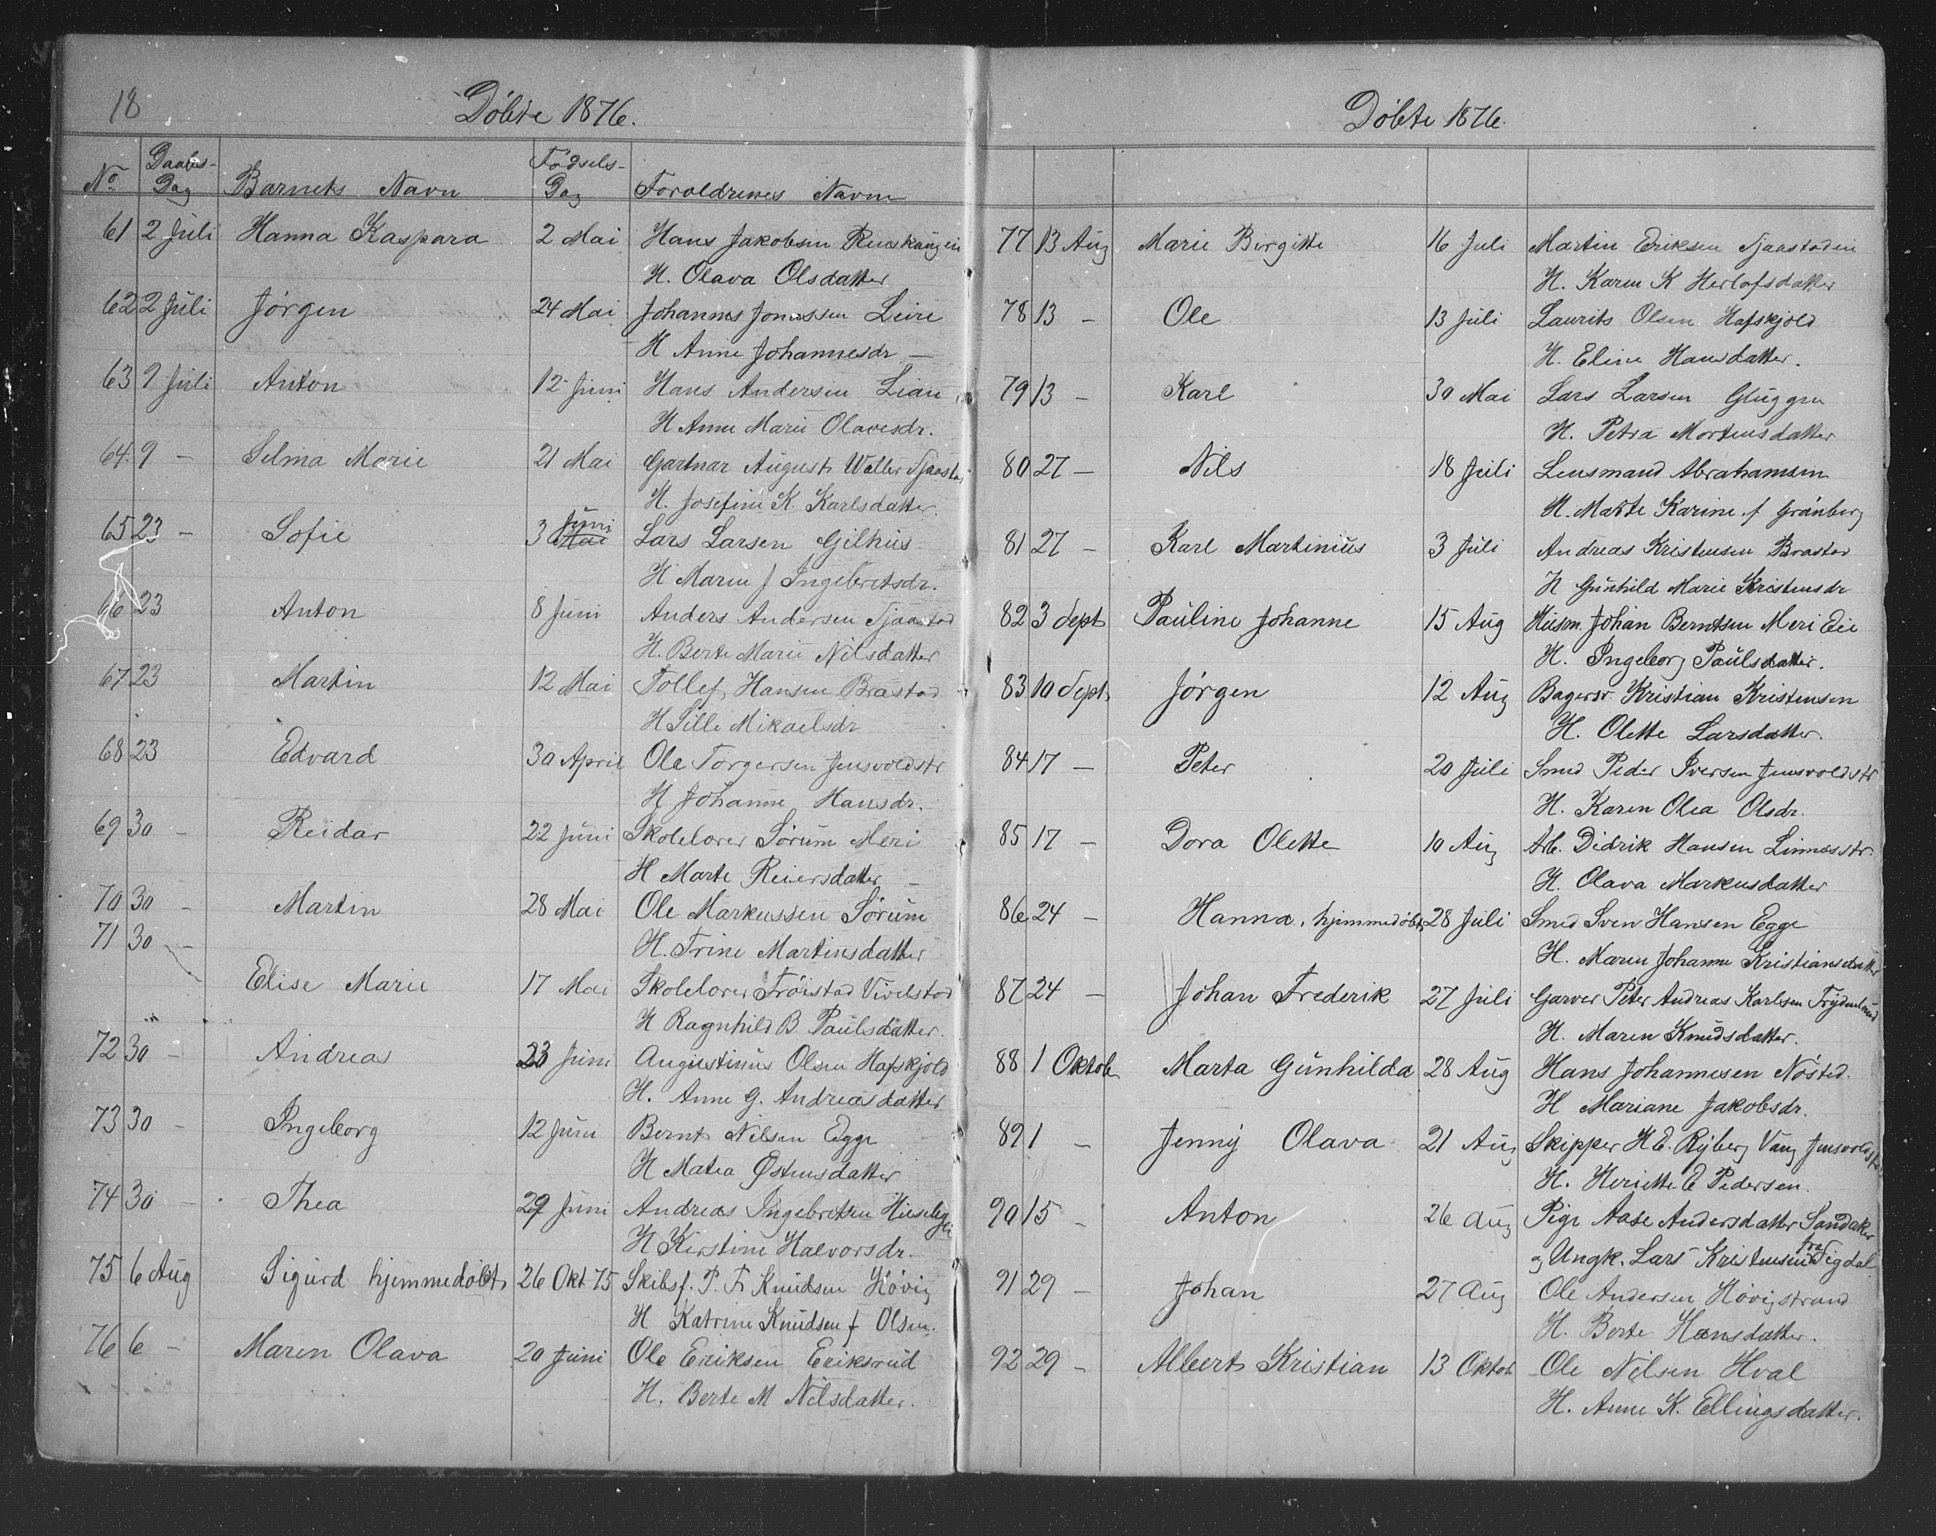 18
Döbte 1876.
No Daabs-Dag Barnets Navn Födsels-Dag Foroldrenes Navn
61 2 Juli Hanna Kaspara 2 Mai Hans Jakobsen
H. Olava Olsdatter
62 2 Juli Jörgen 24 Mai Johannes Jonassen Leire
H Anne Johannesdr —
63 9 Juli Anton 12 Juni Hans Andersen Lian
H Anne Marie Olavesdr.
64. 9 — Selma Marie 21 Mai Gartnar August Weller
H. Josefine K. Karlsdatter.
65 23 — Sofie 3 Juni Lars Larsen Gilhus
H Maren J Ingebretsdr.
66 23 Anton 8 Juni Anders Andersen Tjaastad
H. Berte Marie Nilsdatter
67 23 Martin 12 Mai Tollef Hansen Brastad
H Sille Mikaelsdr
68 23 Edvard 30 April Ole Torgersen Jensvoldstr
H Johanne Hansdr.
69 30 — Reidar 22 Juni Skolelorer Sörum Meri
H Marte Reiersdatter —
70 30 — Martin 28 Mai Ole Markussen Sörum
H. Trine Martinsdatter
71 30 — Elise Marie 17 Mai Skolelorer Fröistad Vivelstad
H Ragnhild B Paulsdatter.
72 30 — Andreas 23 Juni Augustinus Olsen Hafskjold
H. Anne G. Andreasdatter
73 30 — Ingeborg 12 Juni Bernt Nilsen Egge
H Matea Östensdatter
74 30 — Thea 29 Juni Andreas Ingebretsen
H Kerstine Halvorsdr.
75 6 Aug Sigurd hjemmedöbt 26 Okt 75 Skibsf. P. F. Knudsen Hövig
H Katrine Knudsen f Olsen.
76 6 — Maren Olava 20 Juni Ole Eriksen Eriksrud
H. Berte M Nilsdatter.
Döbte 1876.
77 13 Aug Marie Birgitte 16 Juli Martin Eriksen Tjaastadeie
H. Karen K Herlofsdatter
78 13 — Ole 13 Juli Laurits Olsen Hafskjold
H. Eline Hansdatter.
79 13 — Karl 30 Mai Lars Larsen Gluggen
H. Petra Mortensdatter
80 27 — Nils 18 Juli Lensmand Abrahamsen
H. Marte Karine f Grönberg
81 27 — Karl Martinius 3 Juli Andreas Kristensen Brastad
H Gunhild Marie Kristensdr
82 3 Sept Pauline Johanne 15 Aug Husm. Johan Berntsen Meri Eie
H. Ingeborg Paulsdatter.
83 10 Sept Jörgen 12 Aug Bagersv. Kristian Kristensen
H. Olette Larsdatter.
84 17 — Peter 20 Juli Smed Peder Iversen Jensvoldstr
H. Karen Olea Olsdr.
85 17 — Dora Olette 10 Aug Arb. Didrik Hansen Linnesstr.
H. Olava Markusdatter
86 24 — Hanna, hjemmedöbt 28 Juli Smed Sven Hansen Egge
H. Maren Johanne Kristiansdatter
87 24 — Johan Frederik 27 Juli Garver Peter Andreas Karlsen Frydenlund
H. Maren Knudsdatter.
88 1 Oktob Marta Gunhilda 28 Aug Hans Johannesen Nösted.
H Mariane Jakobsdr.
89 1 — Jenny Olava 21 Aug Skipper H E. Ryberg Vang Jensvoldstr
H. Heriette E Pedersen.
90 15 — Anton 26 Aug Pige Aase Andersdatter Sandaker
og Ungk. Lars Kristensen fra Sigdal
91 29 — Johan 27 Aug Ole Andersen Hövigstrand
H. Berte Hansdatter.
92 29 — Albert Kristian 13 Oktob Ole Nilsen Hval
H. Anne K. Ellingsdatter.